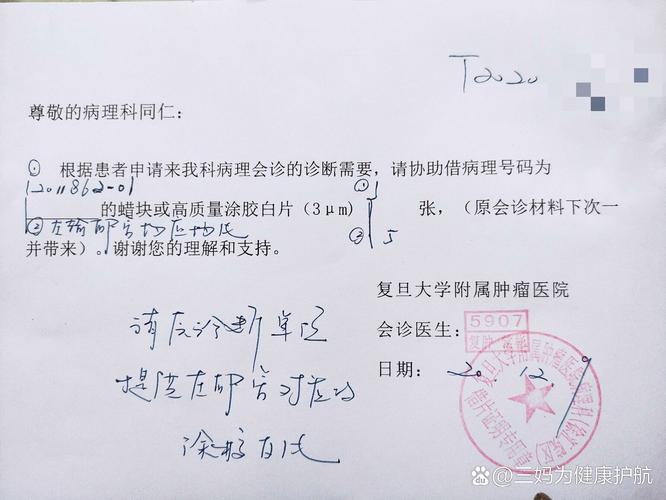 T2020
尊敬的病理科同仁：
① 根据患者申请来我科病理会诊的诊断需要，请协助借病理号码为
1201862-01 ①
的蜡块或高质量涂胶白片（3μm） 张，（原会诊材料下次一
② 左输卵管 ② 5
并带来）。谢谢您的理解和支持。
复旦大学附属肿瘤医院
请原诊断单位
会诊医生：
5907
复肿
提供左卵管对应的
日期： 20.12.9
涂胶白片
复旦大学附属肿瘤医院病理科
借片证明专用章
三妈为健康护航